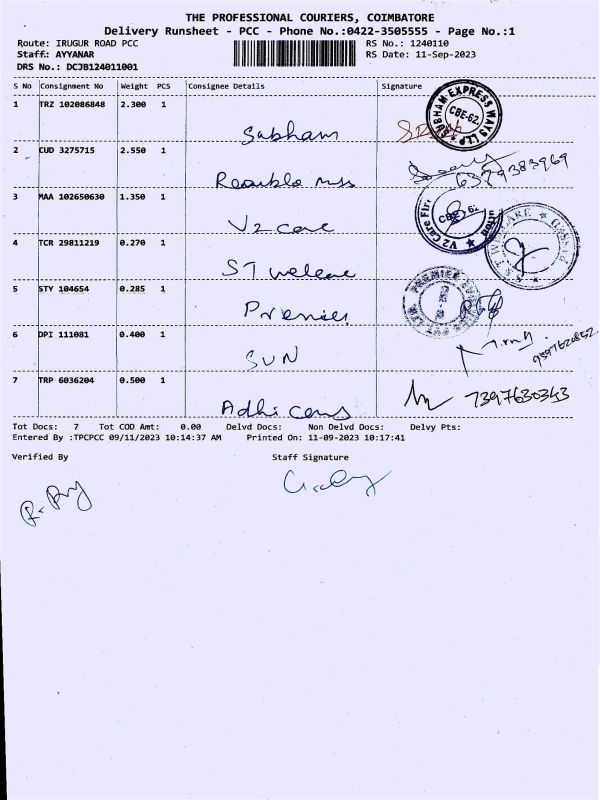 THE PROFESSIONAL COURIERS, COIMBATORE
Delivery Runsheet - PCC - Phone No.:0422-3505555 - Page No.:1
Route: IRUGUR ROAD PCC RS No.: 1240110
Staff.: AYYANAR RS Date: 11-Sep-2023
DRS No.: DCJB124011001
S No Consignment No Weight PCS Consignee Details Signature
1 TRZ 102086848 2.300 1 Subham SUBHAM EXPRESS WAYS LLP CBE-62.
2 CUD 3275715 2.550 1 6379383969
3 MAA 102650630 1.350 1 V2 care V2 Care CBE 62
4 TCR 29811219 0.270 1 ST welcare
5 STY 104654 0.285 1 Premier PREMIER
6 DPI 111081 0.400 1 SUN 9597620852
7 TRP 6036204 0.500 1 Adhi cons 7397630343
Tot Docs: 7 Tot COD Amt: 0.00 Delvd Docs: Non Delvd Docs: Delvy Pts:
Entered By :TPCPCC 09/11/2023 10:14:37 AM Printed On: 11-09-2023 10:17:41
Verified By Staff Signature